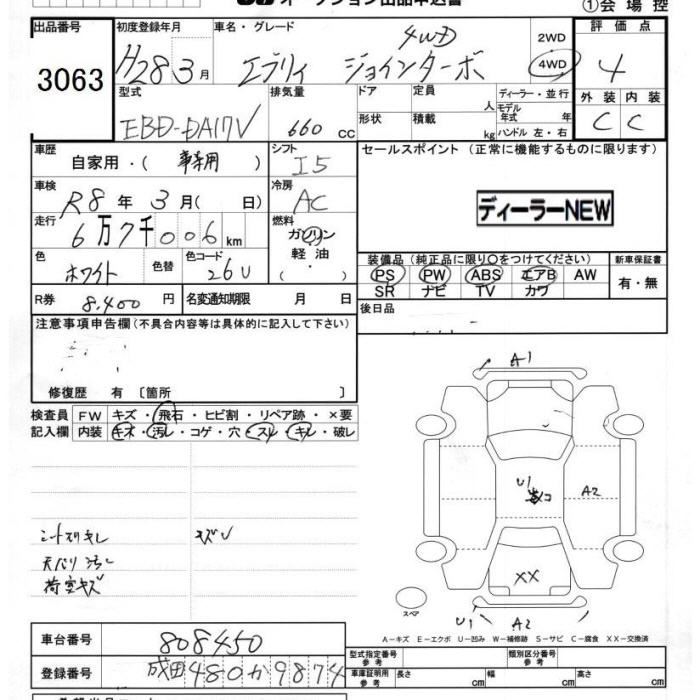 オークション出品申込書 ①会場控
出品番号 初度登録年月 車名・グレード 評価点
3063 H28 3月 エブリィ ジョインターボ 4WD 2WD 4WD 4
型式 排気量 ドア 定員 人 ディーラー・並行 外装 内装
EBD-DA17V 660 cc 形状 積載 kg モデル年式 年 ハンドル 左・右 C C
車歴 自家用・( 事業用 ) シフト I5 セールスポイント (正常に機能するものに限ります)
車検 R8年 3月( 日) 冷房 AC ディーラーNEW
走行 6万7千006km 燃料 ガソリン
軽油
( ・ )
色 ホワイト 色替 色コード 26U
装備品 (純正品に限り○をつけてください) 新車保証書
PS PW ABS エアB AW 有・無
SR ナビ TV カワ
R券 8,400円 名変通知期限 月 日 後日品
注意事項申告欄(不具合内容等は具体的に記入して下さい)
修復歴 有 〔箇所 〕
検査員 FW キズ・飛石・ヒビ割・リペア跡・×要
記入欄 内装 キズ・汚レ・コゲ・穴・スレ・キレ・破レ
A1
U1
A2
XX
U1 A2
スペア
シートスリキレ キズU
天バリ汚レ
荷室キズ
A-キズ E-エクボ U-凹み W-補修跡 S-サビ C-腐食 XX-交換済
車台番号 808450
登録番号 成田480か9874
型式指定番号 参考 類別区分番号 参考
車庫証明用 参考 長さ cm 幅 cm 高さ cm